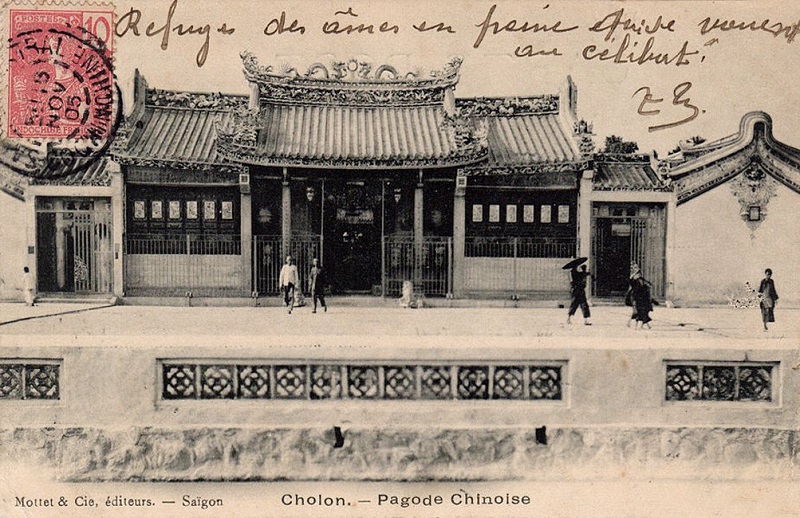 POSTES 10
INDO-CHINE FRANÇAISE
NOV 05
Refuges des âmes en peine
au célibat."
Mottet & Cie, éditeurs. — Saïgon
Cholon. — Pagode Chinoise